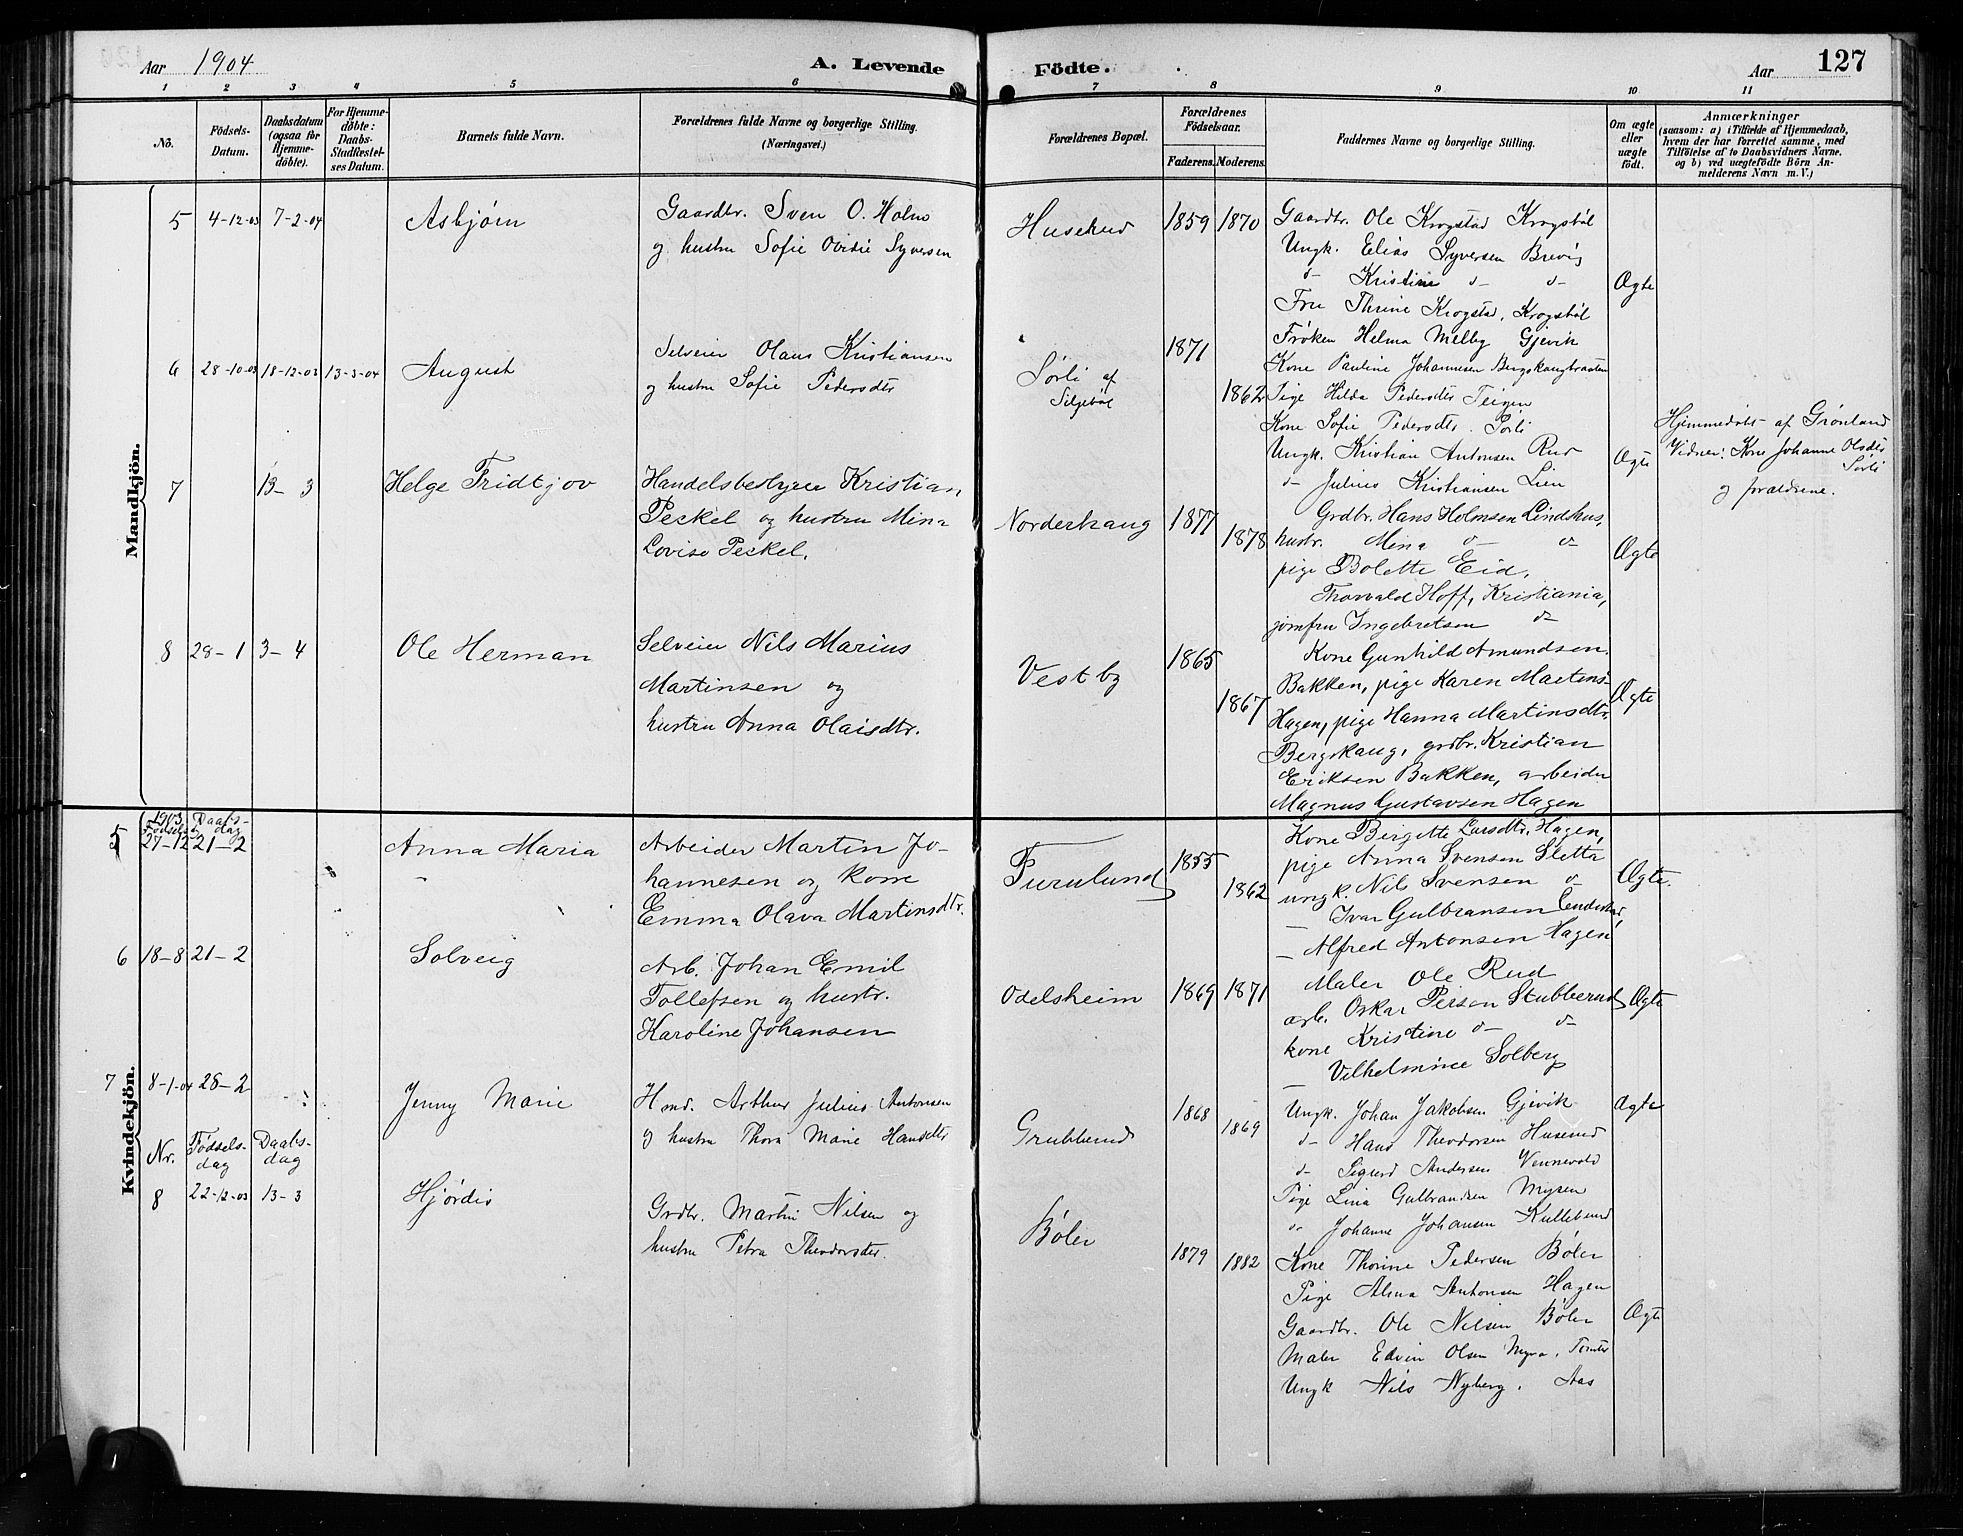 Aar 1904 A. Levende Födte. Aar 127
1 2 3 4 5 6 7 8 9 10 11
No.
Födsels-
Datum.
Daabsdatum
(ogsaa for
Hjemme-
döbte).
For Hjemme-
döbte:
Daabs-
Stadfæstel-
ses Datum.
Barnets fulde Navn.
Forældrenes fulde Navne og borgerlige Stilling.
(Næringsvei.)
Forældrenes Bopæl.
Forældrenes
Födselsaar.
Faderens. Moderens.
Faddernes Navne og borgerlige Stilling.
Om ægte
eller
uægte
födt.
Anmærkninger
(saasom: a) i Tilfælde af Hjemmedaab,
hvem der har forrettet samme, med
Tilföielse af to Daabsvidners Navne.
og b) ved uægtefödte Börn An-
melderens Navn m. V.)
Mandkjön.
5 4-12-03 7-2-04 Asbjørn
Gaardbr. Sven O. Holm
og hustru Sofie Ovidie Syversen
Huserud 1859 1870
Gaardbr. Ole Krogstad Krogsbøl
Ungk. Elias Syversen Brevig
d- Kristine d- d-
Fru Thrine Krogstad, Krogsbøl
Frøken Helma Melby Gjevik
Ægte
6 28-10-03 18-12-03 13-3-04 August
Selveier Olaus Kristiansen
og hustru Sofie Pedersdtr
Sørli af
1871 1862
Kone Pauline Johannesen Bergskaugbraaten
Pige Hilda Pedersdtr Teigen
Kone Sofie Pedersdtr. Sørli
Ungk. Kristian Antonsen Rud
d- Julius Kristiansen Lien
Ægte
Hjemmedøbt af Grønland
Vidner: Kone Johanne Olsdtr
Sørli
og forældrene.
7 13-3 Helge Fridtjov
Handelsbestyrer Kristian
Peckel og hustru Mina
Lovise Peckel.
Norderhaug 1877 1878
Grdbr. Hans Holmsen Lindhus,
hustr. Mina d- d-
pige Bolette Eid,
Thorvald Hoff, Kristiania,
jomfru Ingebretsen d-
Ægte
8 28-1 3-4 Ole Herman
Selveier Nils Marius
Martinsen og
hustru Anna Olaisdtr.
Vestby 1865 1867
Kone Gunhild Amundsen.
Bakken, pige Karen Martins-
Hagen, pige Hanna Martinsdtr.
Bergskaug, grdbr. Kristian
Eriksen Bakken, arbeider
Magnus Gustavsen Hagen
Ægte
Kvindekjön.
1903.
Fødselsdag Daabs-
dag
5 27-12 21-2 Anna Maria
Arbeider Martin Jo-
hannesen og kone
Emma Olava Martinsdtr.
Furulund 1855 1862
Kone Birgitte Larsdtr. Hagen,
pige Anna Svensen Sletta
ungk. Nils Svensen d-
Ivar Gulbransen
- Alfred Antonsen Hagen
Ægte.
6 18-8 21-2 Solveig
Arb. Johan Emil
Tollefsen og hustr.
Karoline Johansen
Odelsheim 1869 1871
Maler Ole Rud
arb. Oskar Person Stubberud
kone Kristine d- d-
- Vilhelmine Solberg
Ægte
7 8-1-04 28-2 Jenny Marie
Hmd. Arthur Julius Antonsen
og hustru Thora Marie Hansdtr
Grubberud 1868 1869
Ungk. Johan Jakobsen Gjevik
d- Hans Theodorsen Huserud
d- Sigurd Andersen Vennevold
Pige Lina Gulbrandsen Mysen
d- Johanne Johansen Kullebund
Ægte
Nr. Fødsels-
dag Daabs-
dag
8 22-12-03 13-3 Hjørdis
Grdbr. Martin Nilsen og
hustru Petra Theodorsdtr.
Bøler 1879 1882
Kone Thorine Pedersen Bøler
Pige Alma Antonsen Hagen
Gaardbr. Ole Nilsen Bøler
Maler Edvin Olsen Myra, Tomter
Ungk Nils Nyberg, Aas
Ægte